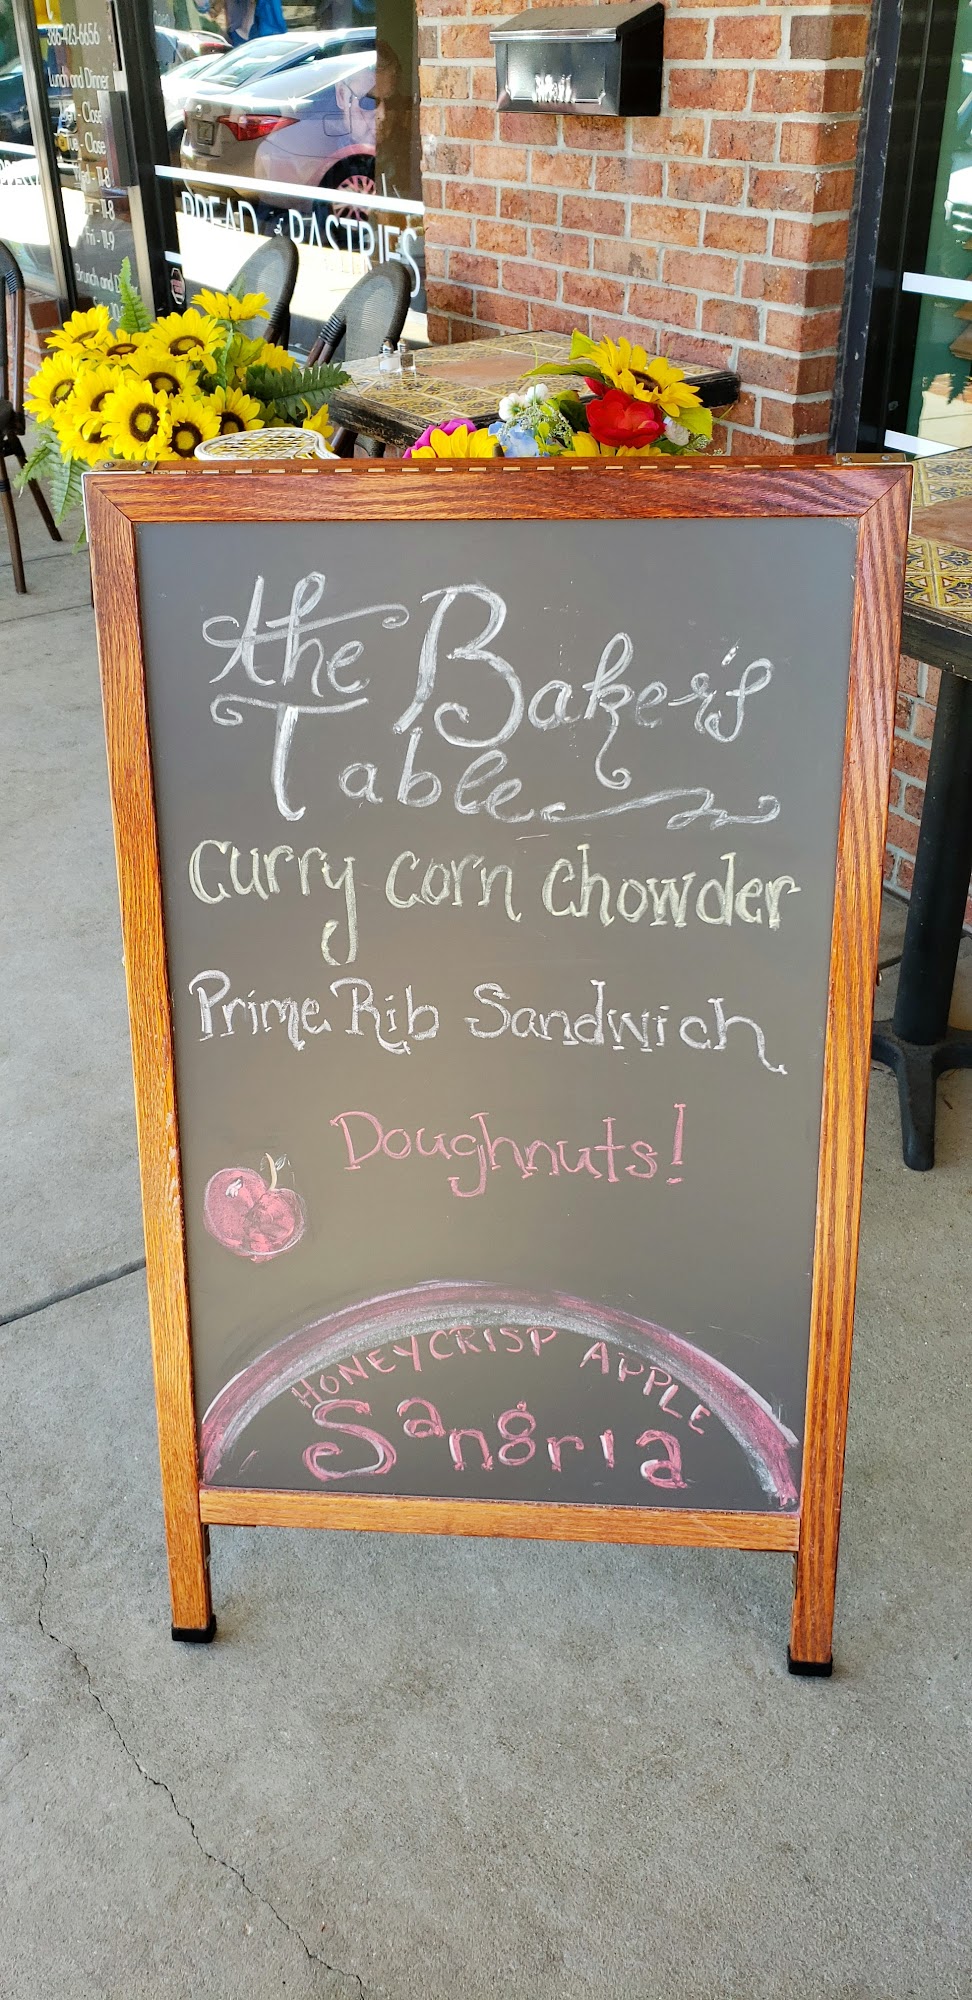 386-423-6656
Lunch and Dinner
- Close
Tue - Close
- 11-8
- 11-8
Fri - 11-9
Brunch and
BREAD & PASTRIES
Mail
the Baker's
Table
Curry Corn Chowder
Prime Rib Sandwich
Doughnuts!
HONEYCRISP APPLE
Sangria